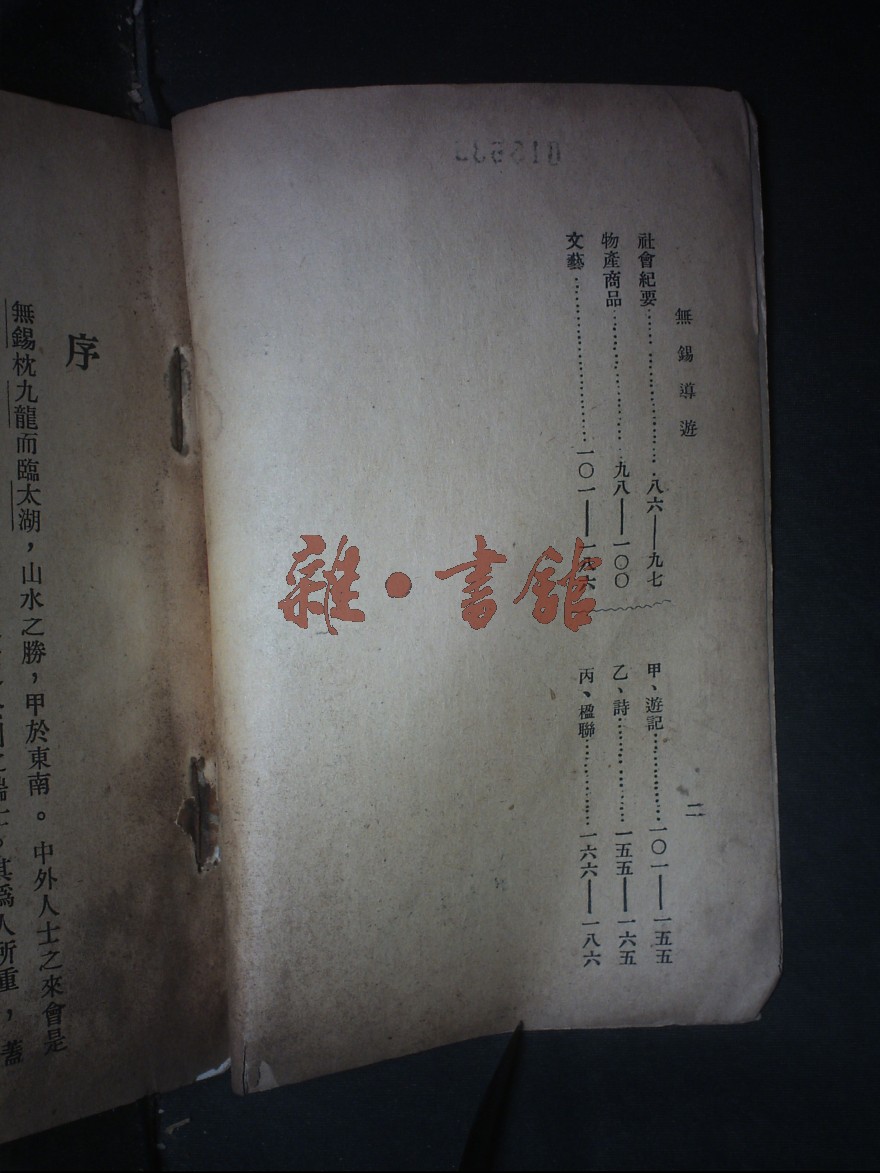 無錫導遊
二
社會紀要……………………八六——九七
物產商品……………………九八——一〇〇
文藝……………………一〇一——一八六
甲、遊記……………一〇一——一五五
乙、詩……………一五五——一六五
丙、楹聯……………一六六——一八六
雜·書館
序
無錫枕九龍而臨太湖，山水之勝，甲於東南。中外人士之來會是
其爲人所重，蓋